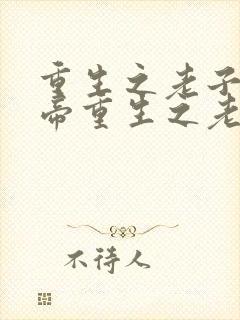 重生之老子
帝重生之老
不待人